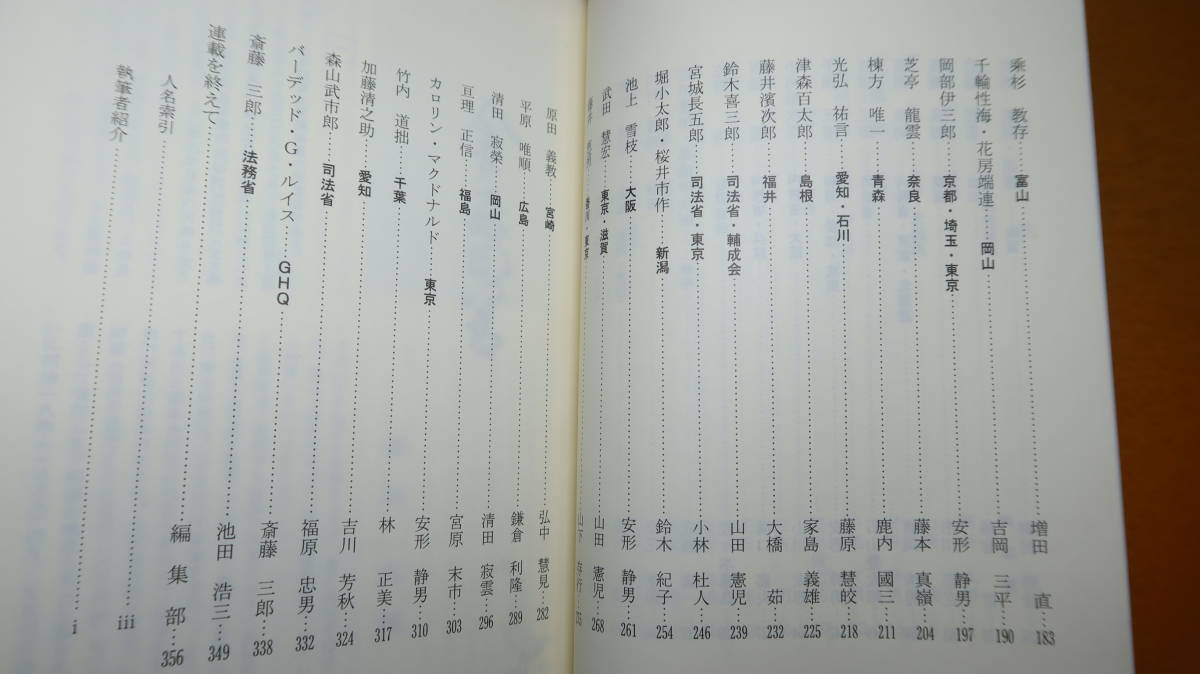 乗杉 教存……富山……増田 直……183
千輪性海・花房端連……岡山……吉岡 三平……190
岡部伊三郎……京都・埼玉・東京……安形 静男……197
芝亭 龍雲……奈良……藤本 真嶺……204
棟方 唯一……青森……鹿内 國三……211
光弘 祐言……愛知・石川……藤原 慧皎……218
津森百太郎……島根……家島 義雄……225
藤井濱次郎……福井……大橋 茹……232
鈴木喜三郎……司法省・輔成会……山田 憲児……239
宮城長五郎……司法省・東京……小林 杜人……246
堀小太郎・桜井市作……新潟……鈴木 紀子……254
池上 雪枝……大阪……安形 静男……261
武田 慧宏……東京・滋賀……山田 憲児……268
東京……山下
原田 義教……宮崎……弘中 慧見……282
平原 唯順……広島……鎌倉 利隆……289
清田 寂榮……岡山……清田 寂雲……296
亘理 正信……福島……宮原 末市……303
カロリン・マクドナルド……東京……安形 静男……310
竹内 道拙……千葉……林 正美……317
加藤清之助……愛知……吉川 芳秋……324
森山武市郎……司法省……福原 忠男……332
バーデッド・G・ルイス……GHQ……斎藤 三郎……338
斎藤 三郎……法務省……池田 浩三……349
連載を終えて……編集部……356
人名索引……iii
執筆者紹介……i